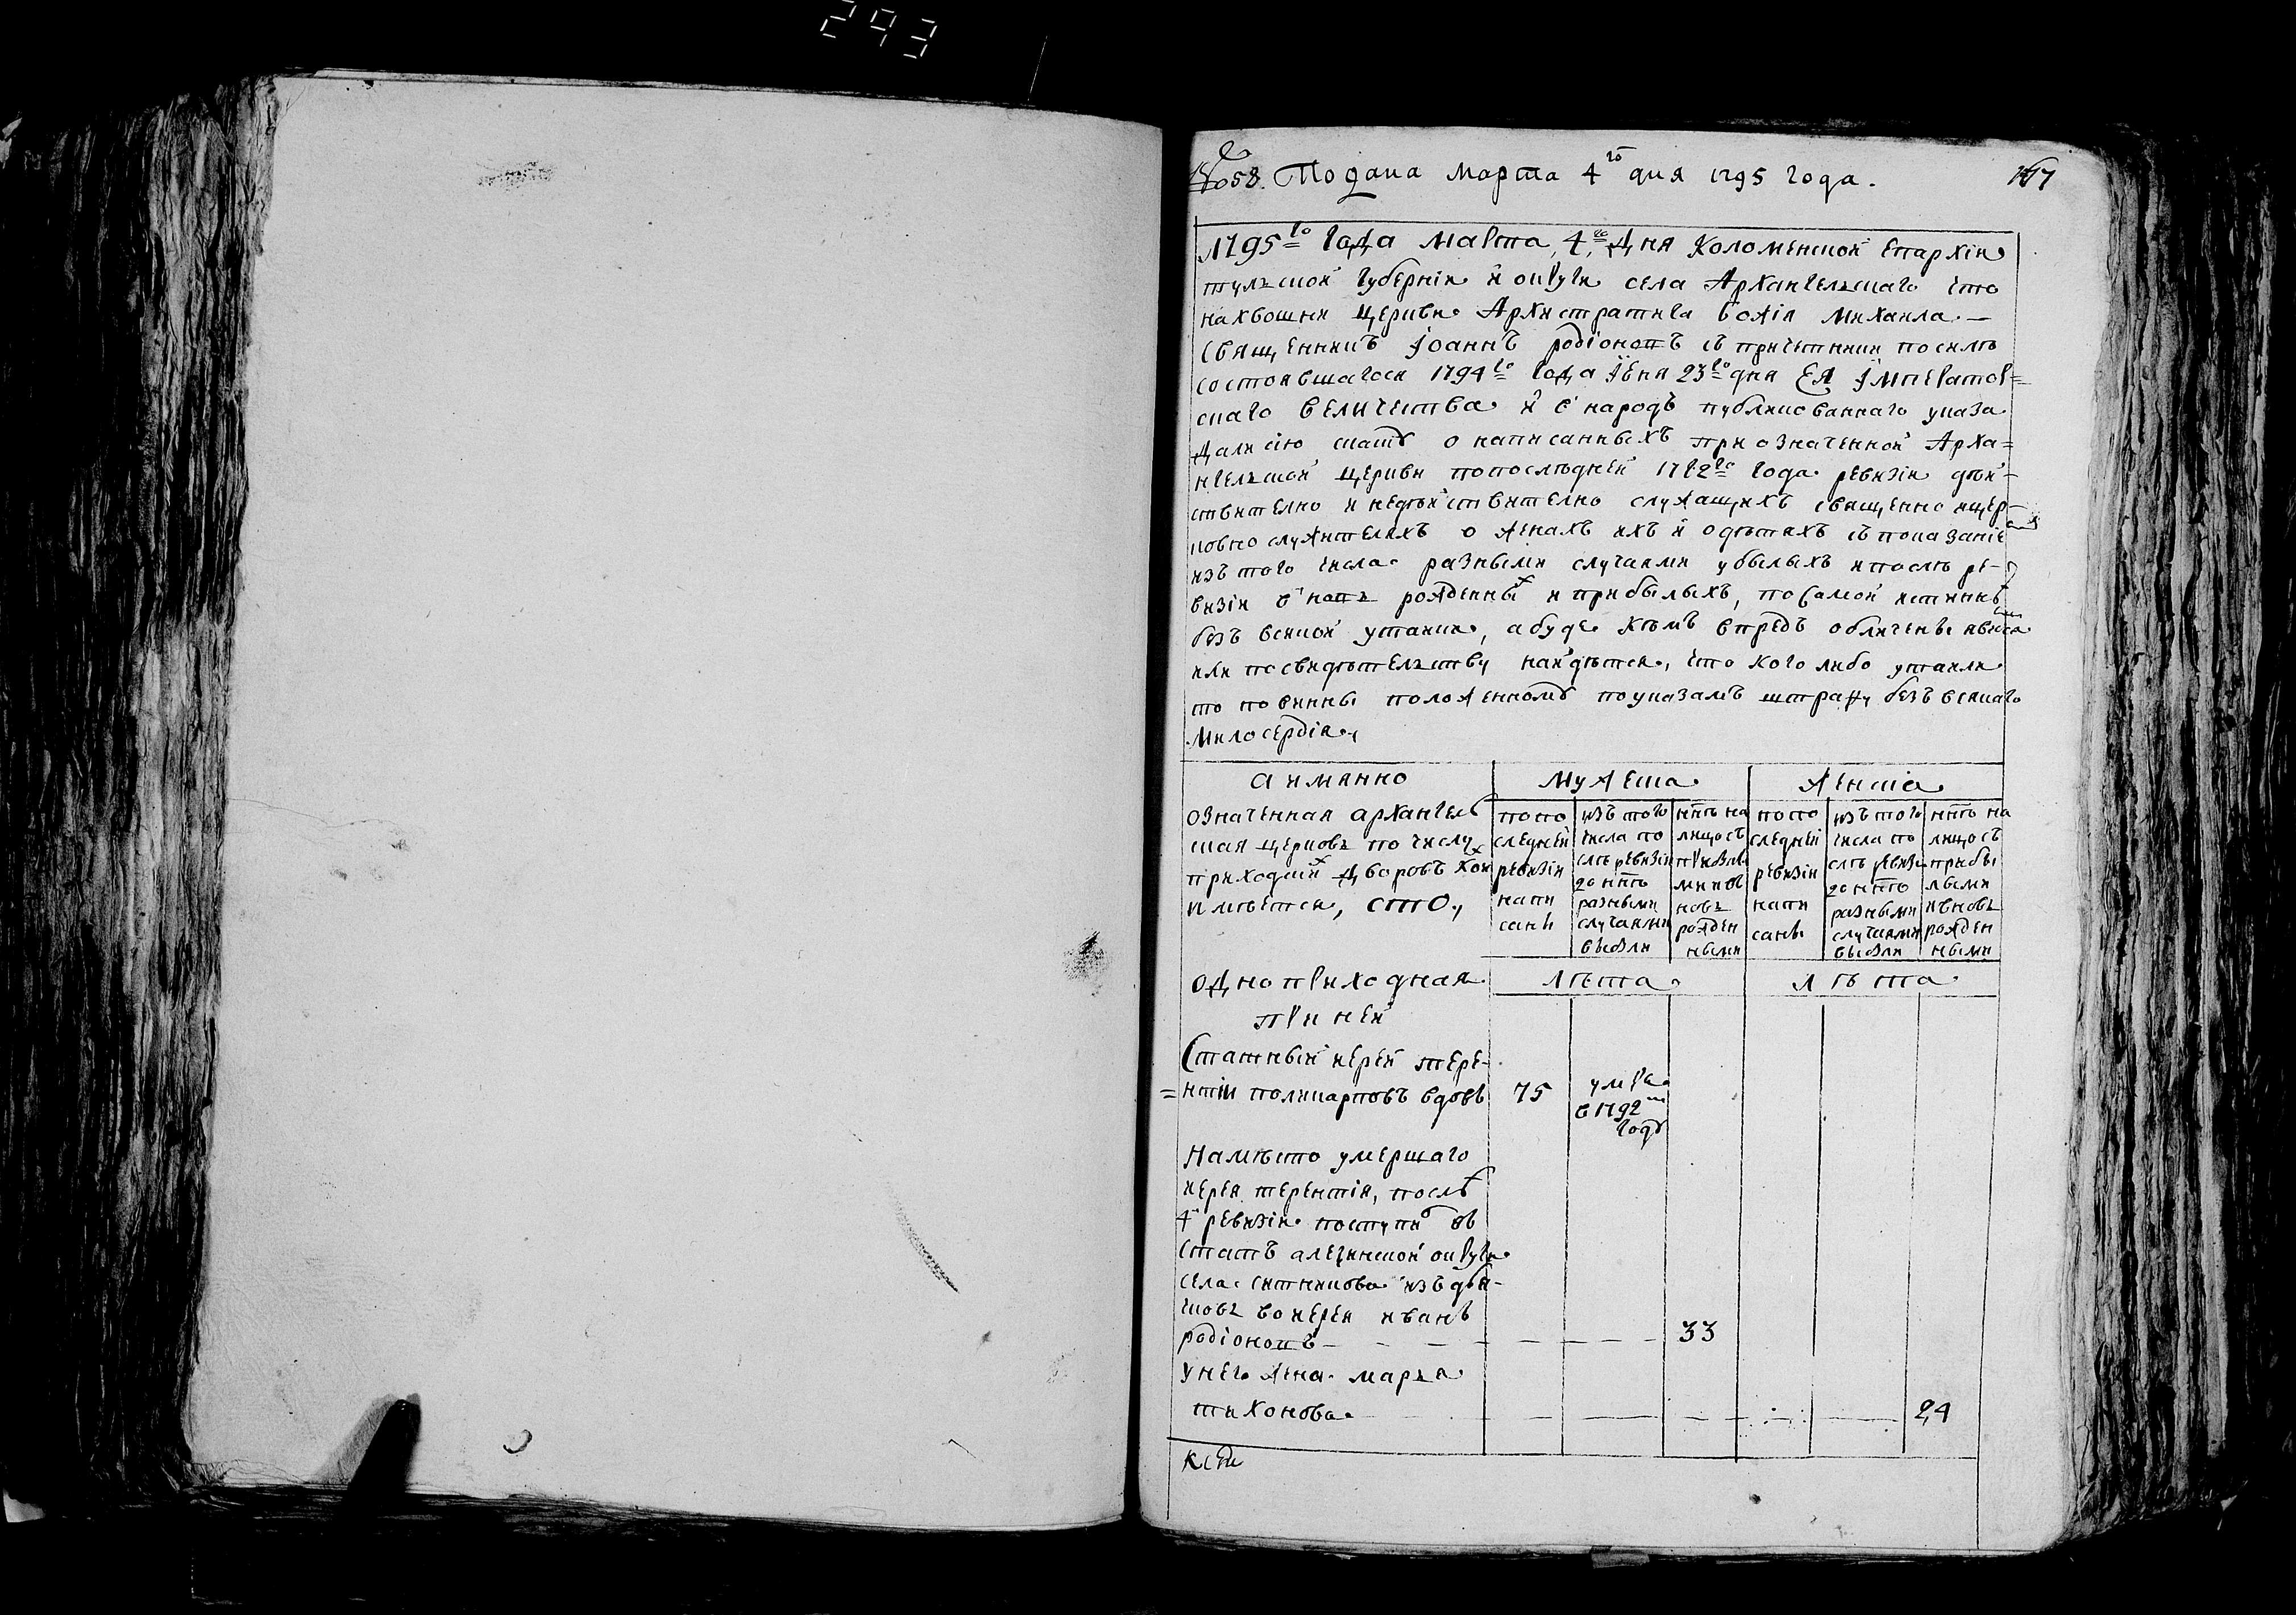 293
№ 58. Подана марта 4го дня 1795 года.
167
1795го года марта 4го дня коломенской епархiи
тулской губернiи и округи села Архангелскаго что
на хвошни церкви Архистратига божiя михаила.—
священникъ Iоаннъ родiоновъ съ причетники по силѣ
состоявшагося 1794го года Iюня 23го дня Ея Император=
скаго величества и в народъ публикованнаго указа
дали сiю скаску о написанныхъ при означенной Арха=
нгелской церкви по последней 1782го года ревизiи дѣй-
ствително и недѣйствително служащихъ священно и цер-
ковно служителяхъ о женахъ ихъ и о дѣтяхъ съ показанiе
изъ того числа разными случаями убылыхъ и после ре-
визiи в новь рожденных и прибылыхъ, по самой истиннѣ
безъ всякой утайки, а буде кѣмъ впредь обличены явимся
или по свидѣтелству найдется, что кого либо утаили
то повинны положенномъ по указамъ штрафу безъ всякаго
милосердiя.,
а имянно
мужеска
женска
означенная архангел
ская церковь по числу
приходских дворовъ коих
имѣется, сто.,
попо
следней
ревизiи
напи
саны
изъ того
числа по
слѣ ревизiи
до нѣ
разными
случаями
выбыли
нѣ на
лицо съ
прибылы
ми и в
новь
рожден
ными
попо
следней
ревизiи
напи
саны
изъ того
числа по
слѣ ревизи
до нѣ
разными
случаями
выбыли
нѣ на
лицо съ
прибы
лыми
и вновь
рожден
ными
однаприходная
лѣта
лѣта
при ней
Статный иерей тере-
=нтiи поликарповъ вдовъ
75
умре
в 1792м
годѣ
На мѣсто умершаго
иерея терентiя, послѣ
4й ревизiи поступил въ
статъ алексинской округи
села ситникова изъ дья-
чковъ во иерея иванъ
родiоновъ — — — — — 33
у него жена марѳа
тихонова — — — — — 24